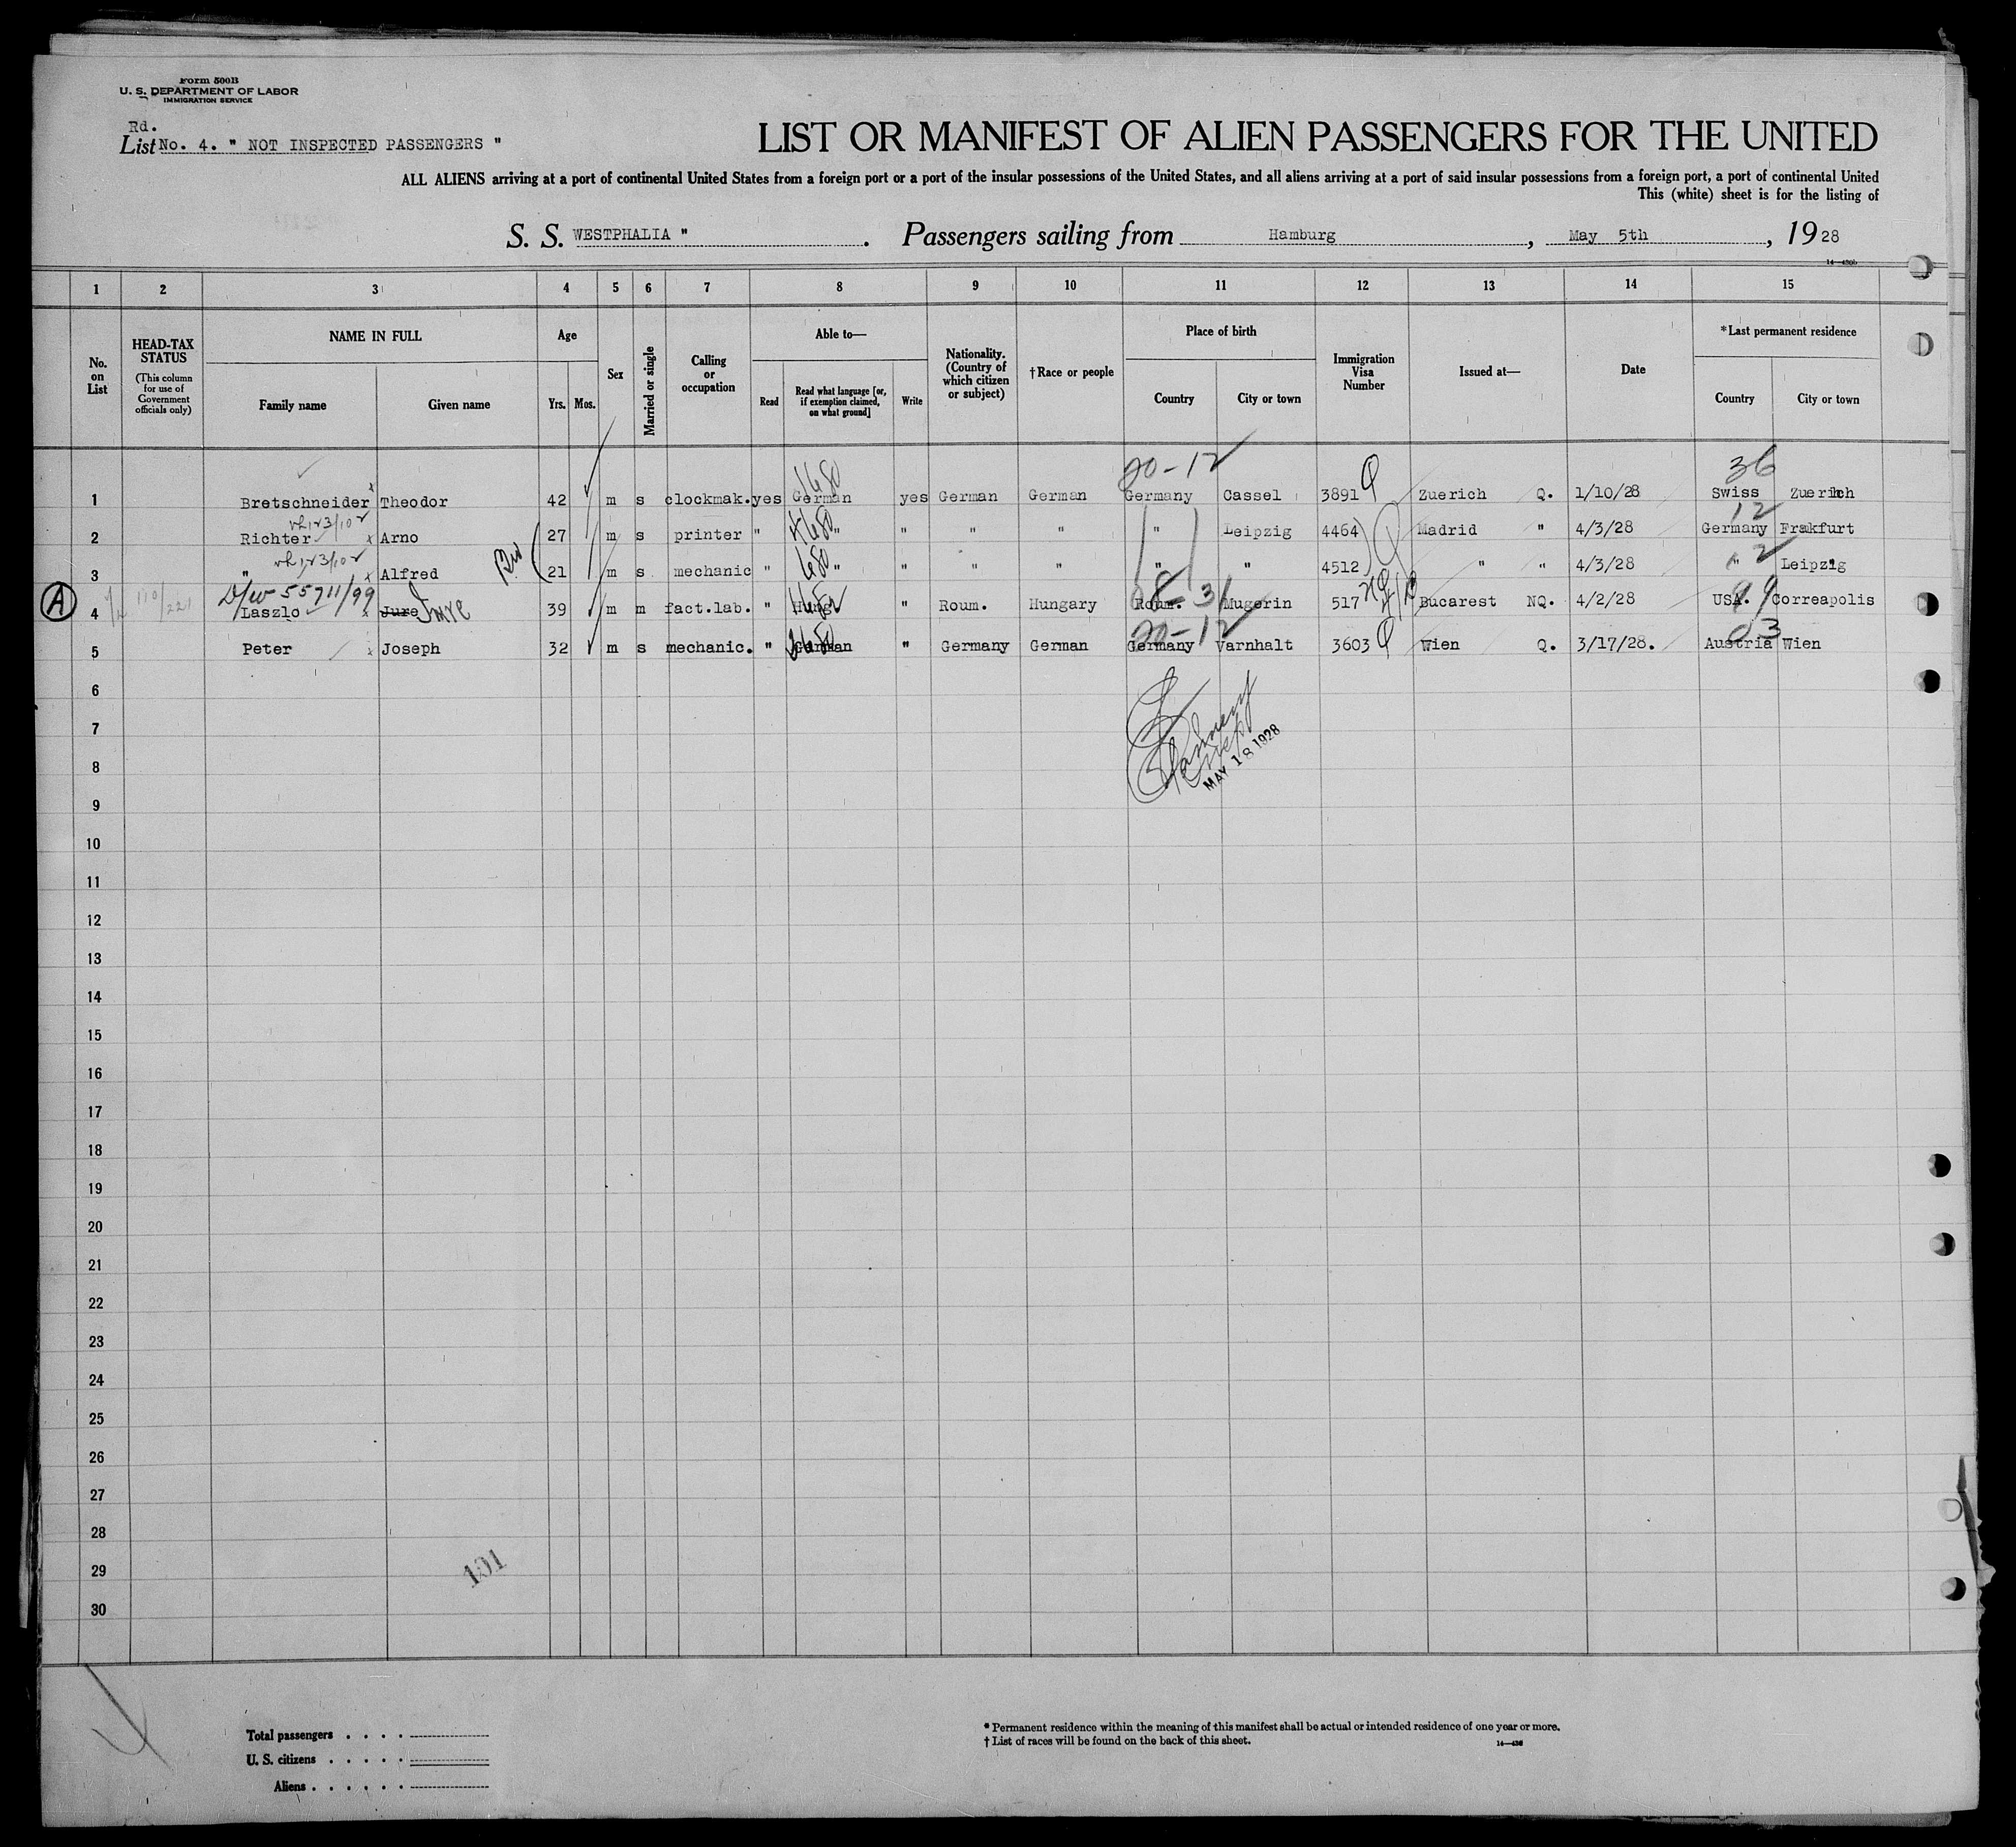 Form 500B
U. S. DEPARTMENT OF LABOR
IMMIGRATION SERVICE
Rd.
List No. 4. " NOT INSPECTED PASSENGERS "
LIST OR MANIFEST OF ALIEN PASSENGERS FOR THE UNITED
ALL ALIENS arriving at a port of continental United States from a foreign port or a port of the insular possessions of the United States, and all aliens arriving at a port of said insular possessions from a foreign port, a port of continental United
This (white) sheet is for the listing of
S. S. WESTPHALIA " . Passengers sailing from Hamburg , May 5th , 19 28
1 2 3 4 5 6 7 8 9 10 11 12 13 14 15
No. on List
HEAD-TAX STATUS (This column for use of Government officials only)
NAME IN FULL
Family name Given name
Age
Yrs. Mos.
Sex
Married or single
Calling or occupation
Able to—
Read Read what language [or, if exemption claimed, on what ground] Write
Nationality. (Country of which citizen or subject)
†Race or people
Place of birth
Country City or town
Immigration Visa Number
Issued at—
Date
*Last permanent residence
Country City or town
20-12 36
1 Bretschneider Theodor 42 m s clockmak. yes German yes German German Germany Cassel 3891 Q Zuerich Q. 1/10/28 Swiss Zuerich
12
2 Richter Arno 27 m s printer " " " " " " Leipzig 4464 Q Madrid " 4/3/28 Germany Frankfurt
3 " Alfred 21 m s mechanic " " " " " " " 4512 " " 4/3/28 " Leipzig
D/w 55711/99
A 4 Laszlo Jure Imre 39 m m fact.lab. " Hung. " Roum. Hungary Roum. Mugerin 517 Bucarest NQ. 4/2/28 USA. Correapolis
20-12 03
5 Peter Joseph 32 m s mechanic. " German " Germany German Germany Varnhalt 3603 Q Wien Q. 3/17/28. Austria Wien
6
7
MAY 18 1928
8
9
10
11
12
13
14
15
16
17
18
19
20
21
22
23
24
25
26
27
28
29
101
30
Total passengers . . . .
U. S. citizens . . . . .
Aliens . . . . . .
* Permanent residence within the meaning of this manifest shall be actual or intended residence of one year or more.
† List of races will be found on the back of this sheet.